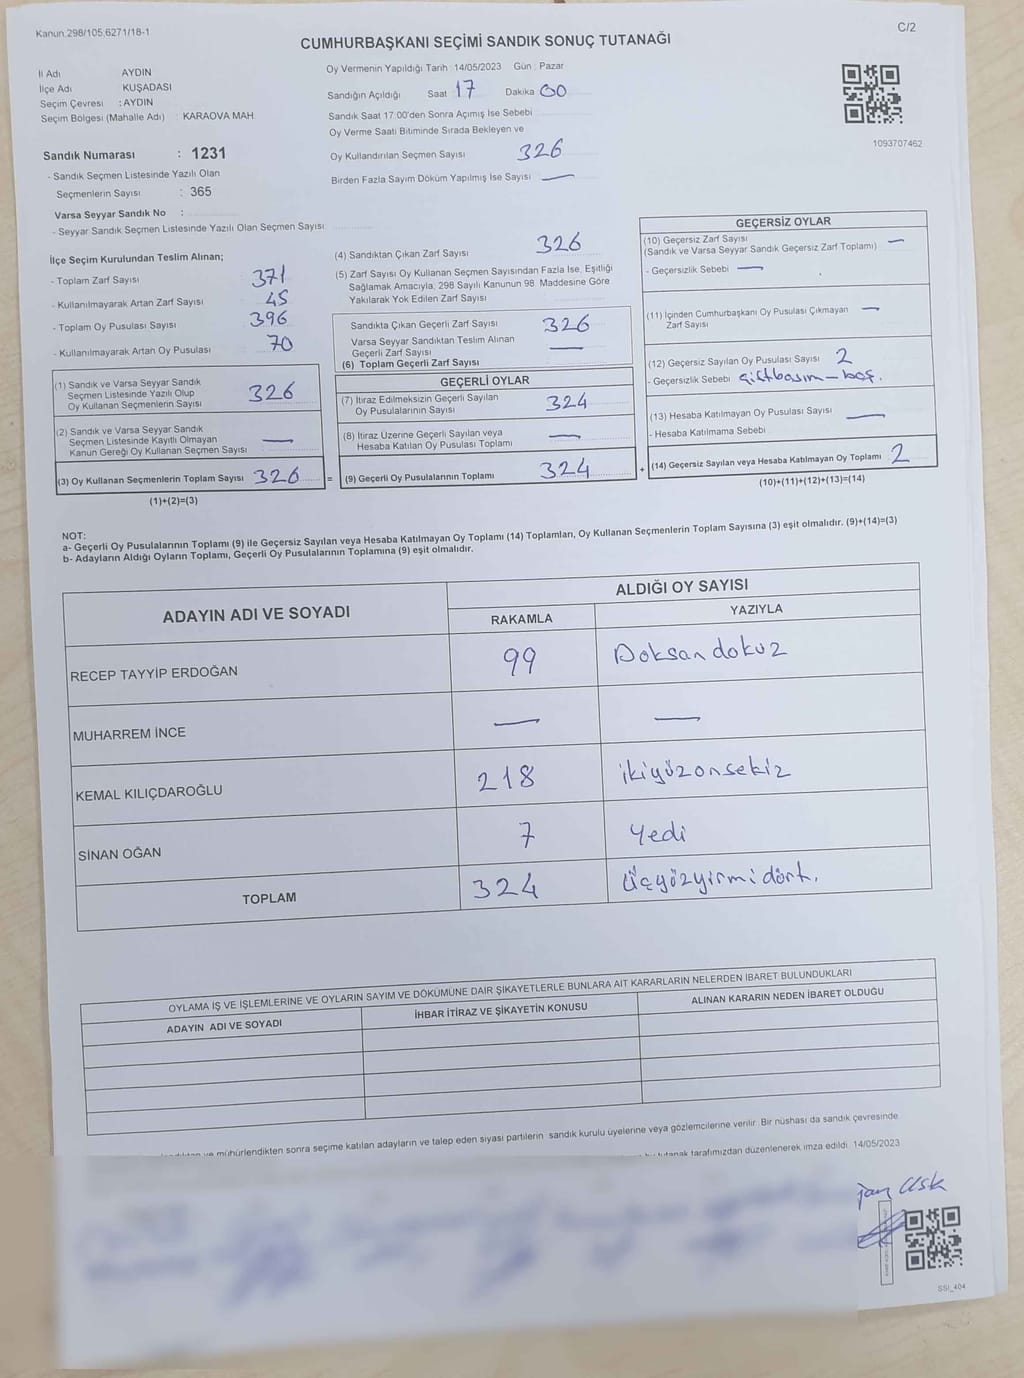 Kanun.298/105,6271/18-1
C/2
CUMHURBAŞKANI SEÇİMİ SANDIK SONUÇ TUTANAĞI
İl Adı AYDIN
İlçe Adı KUŞADASI
Seçim Çevresi : AYDIN
Seçim Bölgesi (Mahalle Adı) : KARAOVA MAH.
Sandık Numarası : 1231
- Sandık Seçmen Listesinde Yazılı Olan
Seçmenlerin Sayısı : 365
Varsa Seyyar Sandık No :
- Seyyar Sandık Seçmen Listesinde Yazılı Olan Seçmen Sayısı
Oy Vermenin Yapıldığı Tarih : 14/05/2023 Gün : Pazar
Sandığın Açıldığı Saat 17 Dakika 00
Sandık Saat 17:00'den Sonra Açımış İse Sebebi
Oy Verme Saati Bitiminde Sırada Bekleyen ve
Oy Kullandırılan Seçmen Sayısı 326
Birden Fazla Sayım Döküm Yapılmış İse Sayısı —
1093707462
İlçe Seçim Kurulundan Teslim Alınan;
- Toplam Zarf Sayısı 371
- Kullanılmayarak Artan Zarf Sayısı 45
- Toplam Oy Pusulası Sayısı 396
- Kullanılmayarak Artan Oy Pusulası 70
(1) Sandık ve Varsa Seyyar Sandık
Seçmen Listesinde Yazılı Olup
Oy Kullanan Seçmenlerin Sayısı 326
(2) Sandık ve Varsa Seyyar Sandık
Seçmen Listesinde Kayıtlı Olmayan
Kanun Gereği Oy Kullanan Seçmen Sayısı —
(3) Oy Kullanan Seçmenlerin Toplam Sayısı 326 =
(1)+(2)=(3)
(4) Sandıktan Çıkan Zarf Sayısı 326
(5) Zarf Sayısı Oy Kullanan Seçmen Sayısından Fazla İse, Eşitliği
Sağlamak Amacıyla, 298 Sayılı Kanunun 98. Maddesine Göre
Yakılarak Yok Edilen Zarf Sayısı
Sandıkta Çıkan Geçerli Zarf Sayısı 326
Varsa Seyyar Sandıktan Teslim Alınan
Geçerli Zarf Sayısı —
(6) Toplam Geçerli Zarf Sayısı
GEÇERLİ OYLAR
(7) İtiraz Edilmeksizin Geçerli Sayılan
Oy Pusulalarının Sayısı 324
(8) İtiraz Üzerine Geçerli Sayılan veya
Hesaba Katılan Oy Pusulası Toplamı —
(9) Geçerli Oy Pusulalarının Toplamı 324 +
GEÇERSİZ OYLAR
(10) Geçersiz Zarf Sayısı —
(Sandık ve Varsa Seyyar Sandık Geçersiz Zarf Toplamı)
- Geçersizlik Sebebi —
(11) İçinden Cumhurbaşkanı Oy Pusulası Çıkmayan —
Zarf Sayısı
(12) Geçersiz Sayılan Oy Pusulası Sayısı 2
- Geçersizlik Sebebi çiftbasım - boş.
(13) Hesaba Katılmayan Oy Pusulası Sayısı —
- Hesaba Katılmama Sebebi
(14) Geçersiz Sayılan veya Hesaba Katılmayan Oy Toplamı 2
(10)+(11)+(12)+(13)=(14)
NOT:
a- Geçerli Oy Pusulalarının Toplamı (9) ile Geçersiz Sayılan veya Hesaba Katılmayan Oy Toplamı (14) Toplamları, Oy Kullanan Seçmenlerin Toplam Sayısına (3) eşit olmalıdır. (9)+(14)=(3)
b- Adayların Aldığı Oyların Toplamı, Geçerli Oy Pusulalarının Toplamına (9) eşit olmalıdır.
ADAYIN ADI VE SOYADI ALDIĞI OY SAYISI
RAKAMLA YAZIYLA
RECEP TAYYİP ERDOĞAN 99 Doksan dokuz
MUHARREM İNCE — —
KEMAL KILIÇDAROĞLU 218 ikiyüzonsekiz
SİNAN OĞAN 7 Yedi
TOPLAM 324 Üçyüzyirmidört.
OYLAMA İŞ VE İŞLEMLERİNE VE OYLARIN SAYIM VE DÖKÜMÜNE DAİR ŞİKAYETLERLE BUNLARA AİT KARARLARIN NELERDEN İBARET BULUNDUKLARI
ADAYIN ADI VE SOYADI İHBAR İTİRAZ VE ŞİKAYETİN KONUSU ALINAN KARARIN NEDEN İBARET OLDUĞU
ve mühürlendikten sonra seçime katılan adayların ve talep eden siyasi partilerin sandık kurulu üyelerine veya gözlemcilerine verilir. Bir nüshası da sandık çevresinde
tutanak tarafımızdan düzenlenerek imza edildi. 14/05/2023
SSİ_404